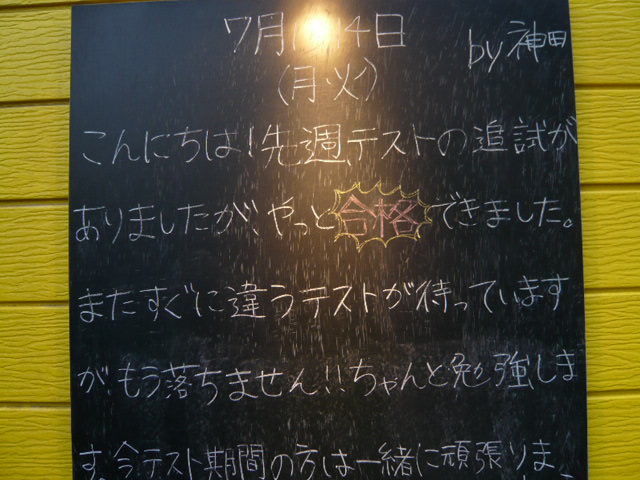 7月 14日
by 神田
(月・火)
こんにちは!先週、テストの追試が
ありましたが、やっと合格できました。
またすぐに違うテストが待っています
が、もう落ちません!!ちゃんと勉強しま
す。今テスト期間の方は一緒に頑張りま